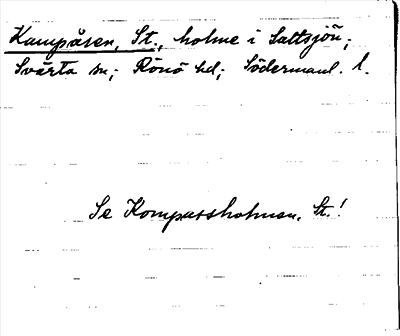 Kampåsen, St., holme i Saltsjön;
Svärta sn; Rönö hd; Södermanl. l.
Se Kompassholmen, St.!